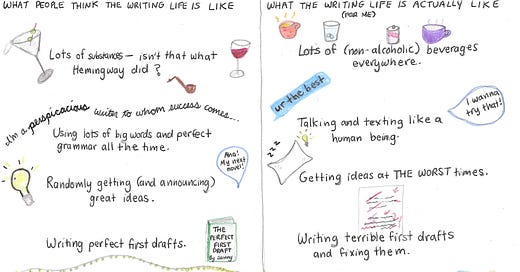 WHAT PEOPLE THINK THE WRITING LIFE IS LIKE
Lots of substances — isn't that what
Hemingway did?
I'm a perspicacious writer to whom success comes...
Using lots of big words and perfect
grammar all the time.
Aha!
My next
novel!
Randomly getting (and announcing)
great ideas.
THE
PERFECT
FIRST
DRAFT
Writing perfect first drafts.
WHAT THE WRITING LIFE IS ACTUALLY LIKE
(FOR ME)
Lots of (non-alcoholic) beverages
everywhere.
ur the best
I wanna
try that!
Talking and texting like a
human being.
zzz
Getting ideas at THE WORST times.
Writing terrible first drafts
and fixing them.